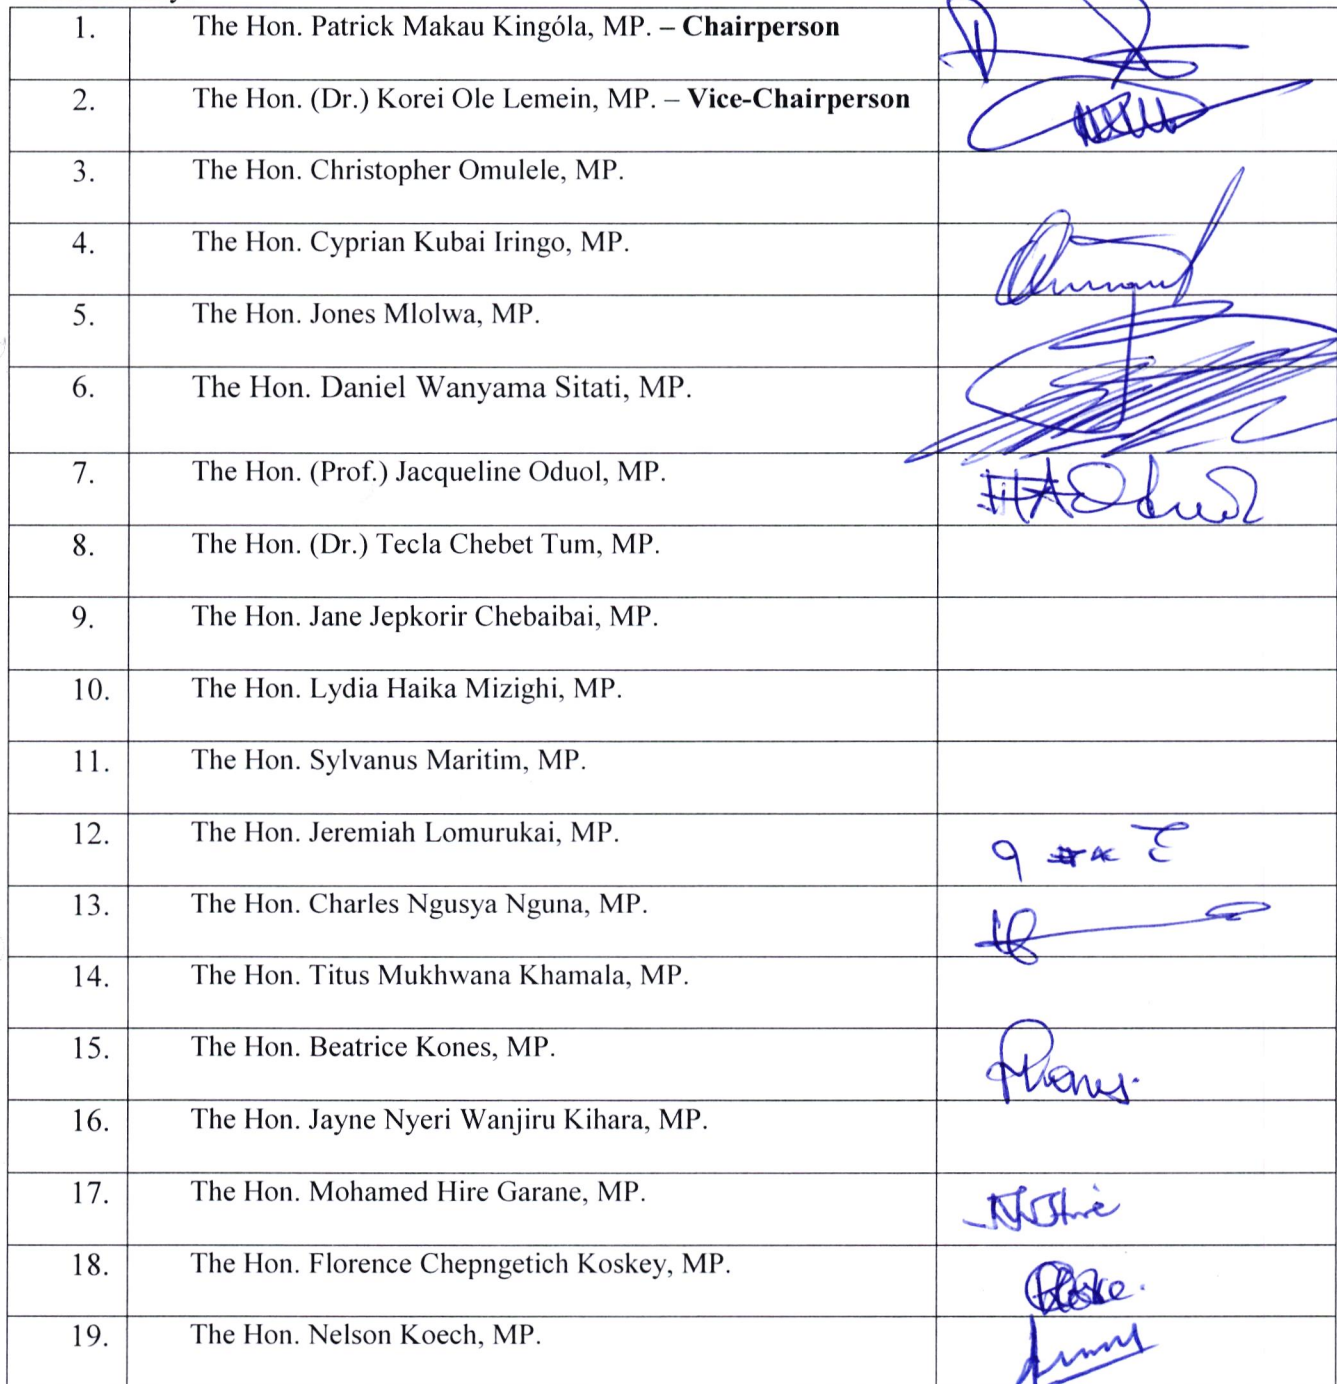 1. The Hon. Patrick Makau Kingóla, MP. – Chairperson
2. The Hon. (Dr.) Korei Ole Lemein, MP. – Vice-Chairperson
3. The Hon. Christopher Omulele, MP.
4. The Hon. Cyprian Kubai Iringo, MP.
5. The Hon. Jones Mlolwa, MP.
6. The Hon. Daniel Wanyama Sitati, MP.
7. The Hon. (Prof.) Jacqueline Oduol, MP.
8. The Hon. (Dr.) Tecla Chebet Tum, MP.
9. The Hon. Jane Jepkorir Chebaibai, MP.
10. The Hon. Lydia Haika Mizighi, MP.
11. The Hon. Sylvanus Maritim, MP.
12. The Hon. Jeremiah Lomurukai, MP.
13. The Hon. Charles Ngusya Nguna, MP.
14. The Hon. Titus Mukhwana Khamala, MP.
15. The Hon. Beatrice Kones, MP.
16. The Hon. Jayne Nyeri Wanjiru Kihara, MP.
17. The Hon. Mohamed Hire Garane, MP.
18. The Hon. Florence Chepngetich Koskey, MP.
19. The Hon. Nelson Koech, MP.